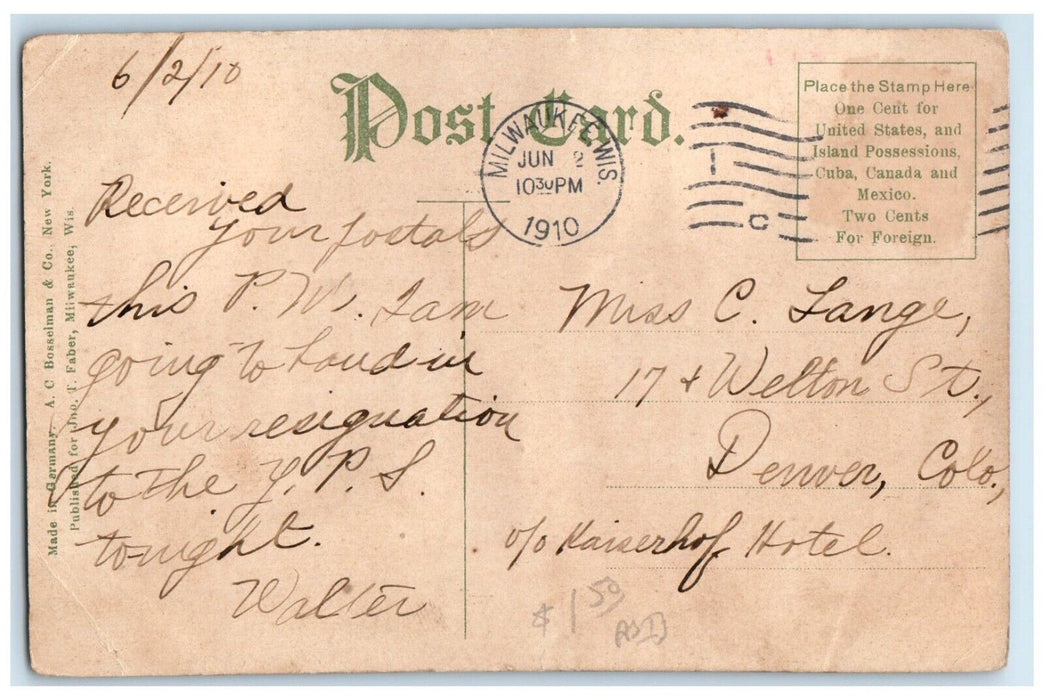 6/2/10
Post Card.
MILWAUKEE, WIS.
JUN 2
1030PM
1910
C
Place the Stamp Here
One Cent for
United States, and
Island Possessions,
Cuba, Canada and
Mexico.
Two Cents
For Foreign.
Made in Germany. A. C Bosselman & Co., New York.
Published for Jno. T. Faber, Milwaukee, Wis.
Received
your postals
this P. M. I am
going to hand in
your resignation
to the Y. P. S.
tonight.
Walter
Miss C. Lange,
17 + Welton St.,
Denver, Colo.,
c/o Kaiserhof Hotel.
$ 1 59